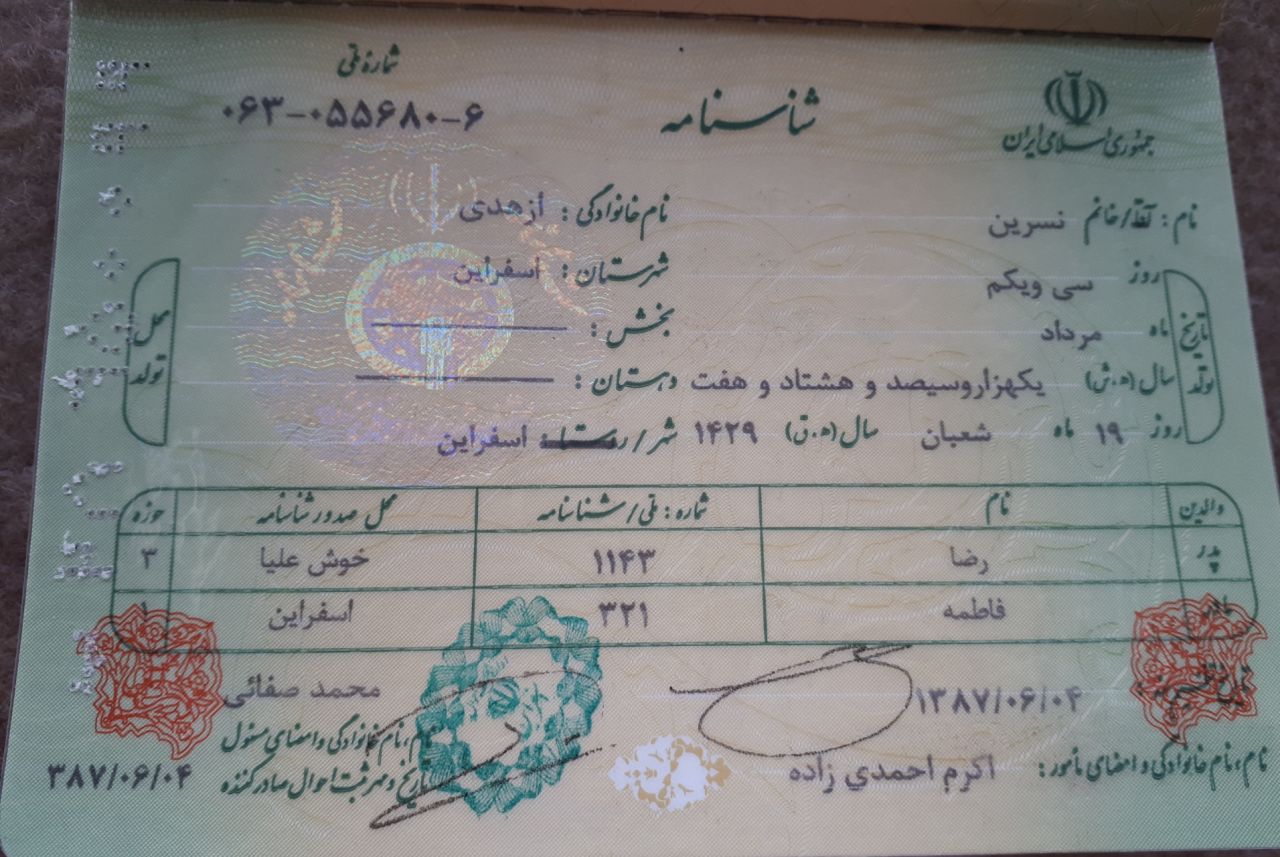 جمهوری اسلامی ایران
شناسنامه
شماره ملی
۰۶۳-۰۵۵۶۸۰-۶
نام: آقا/خانم نسرین نام خانوادگی: ازهدی
تاریخ تولد
روز سی ویکم شهرستان: اسفراین
ماه مرداد بخش:
سال (ه.ش) یکهزاروسیصد و هشتاد و هفت دهستان:
روز ۱۹ ماه شعبان سال (ه.ق) ۱۴۲۹ شهر/روستا: اسفراین
محل تولد
والدین نام شماره: ملی/شناسنامه محل صدور شناسنامه حوزه
پدر رضا ۱۱۴۳ خوش علیا ۳
مادر فاطمه ۳۲۱ اسفراین ۱
۱۳۸۷/۰۶/۰۴ محمد صفائی
نام، نام خانوادگی و امضای مامور: اکرم احمدي زاده
نام، نام خانوادگی و امضای مسئول
تاریخ و مهر ثبت احوال صادرکننده ۳۸۷/۰۶/۰۴